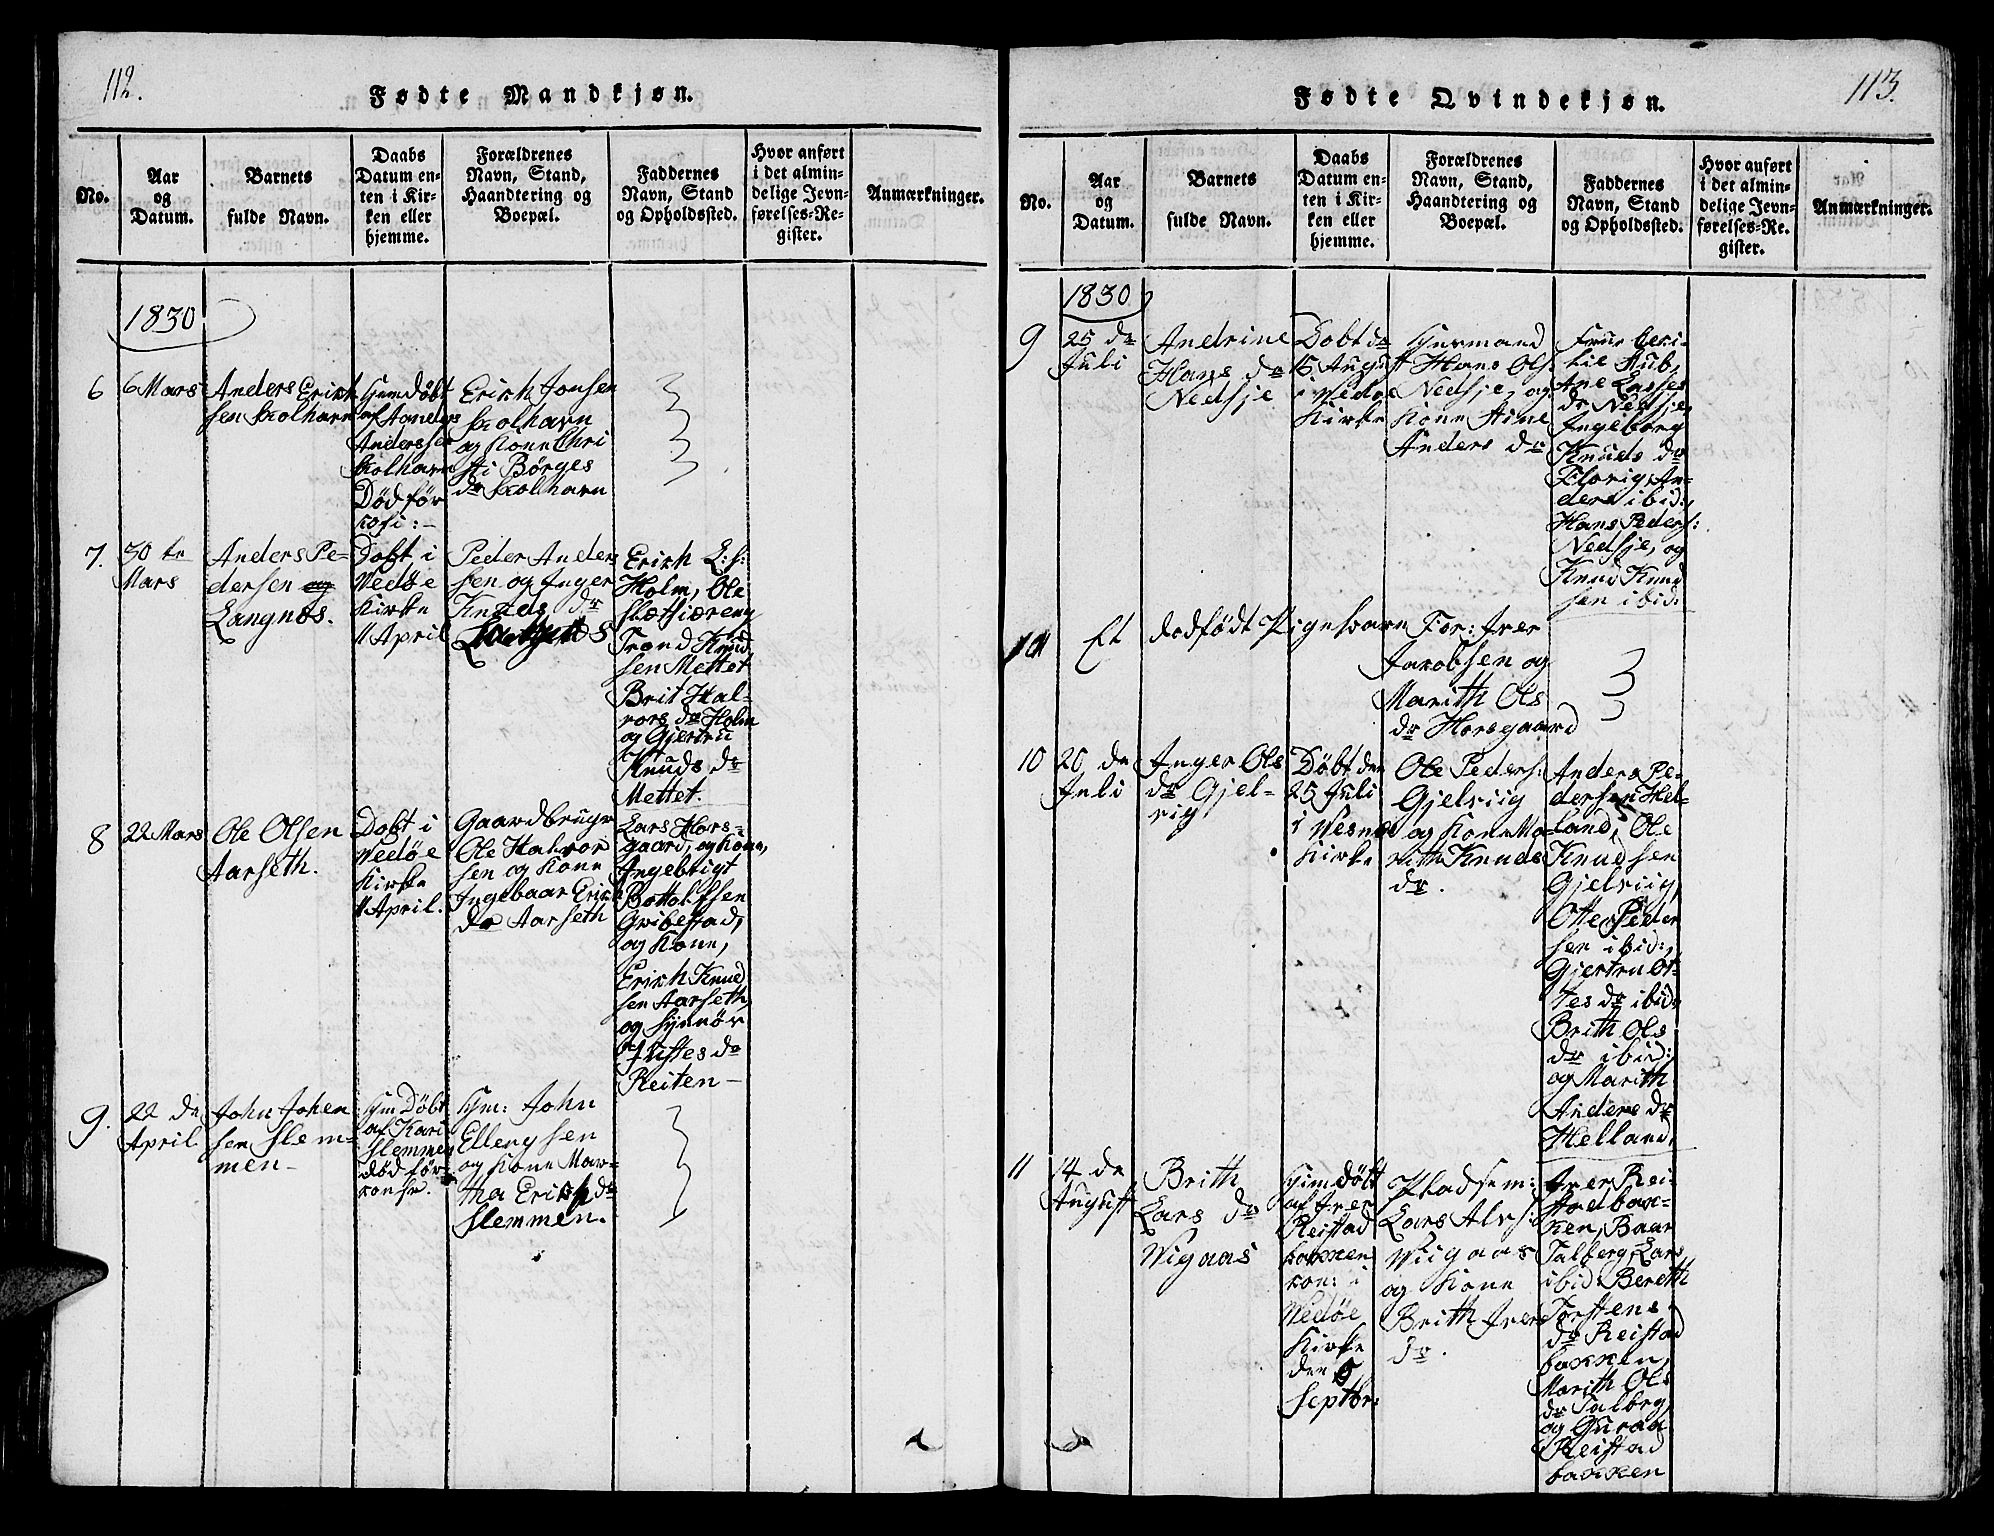 112.
Fødte Mandkjøn.
No.
Aar
og
Datum.
Barnets
fulde Navn.
Daabs
Datum en-
ten i Kir-
ken eller
hjemme.
Forældrenes
Navn, Stand,
Haandtering og
Boepæl.
Faddernes
Navn, Stand
og Opholdssted.
Hvor anført
i det almin-
delige Jevn-
førelses-Re-
gister.
Anmærkninger.
1830
6
6 Mars
Anders Erich
sen Kolhavn
Hjemdøbt
af Anders
Anderssen
Kolhavn
Død før
Erich Jonsen
Kolhavn
og Kone Chri
sti Børges
dr Kolhavn
7.
30 te
Mars
Anders Pe-
dersen og
Langnæs.
Dobt i
Wedøe
Kirke
11 April
Peder Anders
sen og Inger
Knuds dr
Erich L: s:
Holm, Ole
Trond Knud
sen Mettet
Brit Hal-
vors dr Holm
og Gjertru
Knuds dr
Mettet.
8
22 Mars
Ole Olsen
Aarseth.
Dobt i
Wedøe
Kirke
11 April.
Gaardbruger
Ole Halvor
sen og Kone
Ingebaar Erich
dr Aarseth
Lars Hors-
gaard, og Kone,
Ingebrigt
Bottolfsen
Gribestad,
og Kone,
Erich Knud
sen Aarseth,
og Synnør
Justes dr
Reiten-
9.
22 de
April
John Johen
sen Slem-
men-
Hjm Døbt
af Kari
Slemmen
død før
Hjm: John
Ellengsen
og Kone Mar-
tha Erichs dr
Slemmen.
113.
Fødte Qvindekjøn.
No.
Aar
og
Datum.
Barnets
fulde Navn.
Daabs
Datum en-
ten i Kir-
ken eller
hjemme.
Forældrenes
Navn, Stand,
Haandtering og
Boepæl.
Faddernes
Navn, Stand
og Opholdssted.
Hvor anført
i det almin-
delige Jevn-
førelses-Re-
gister.
Anmærkninger.
1830
9
25 de
Juli
Andrine
Hans dr
Nedsje
Dobt d
15 August
i Wedøe
Kirke
Huusmand
Hans Ols:
Nedsje, og
Kone Ane
Anders dr
Frue Ceci-
lie Aub,
Ane Lasses
dr Nedsje,
Ingeborg
Knuds dr
Florig, An-
ders ibid:,
Hans Peders:
Nedsje, og
Knud Knud
sen ibid:
Et dødfødt Pigebarn
For: Iver
Jacobsen og
Marith Ols
dr Horsgaard
10
20 de
Juli
Inger Ols
dr Gjel-
vig
Døbt den
25 Juli
i Wesnæs
Kirke
Ole Peders:
Gjelviig
og Kone Ma-
rith Knuds
dr.
Anders Pe-
dersen Hel-
land, Ole
Knudsen
Gjelviig,
Otte Peder
sen ibid:,
Gjertru Ot-
tes dr ibid:
Brith Ols
dr ibid:
og Marith
Anders dr
Helland.
11
14 de
August
Brith
Lars dr
Wigaas
Hjemdøbt
af Iver
Reistad
bakken
con: i
Wedøe
Kirke
den 5
Septbr:
Pladsem:
Lars Alvs:
Wiigaas
og Kone
Brith Ivers
dr.
Iver Rei-
stadbak-
ken, Baar
Talberg, Lars
ibid: Bereth
Torstens
dr Reistad
bakken,
Marith Ols
dr Talberg,
og Guraa
Reistad
bakken